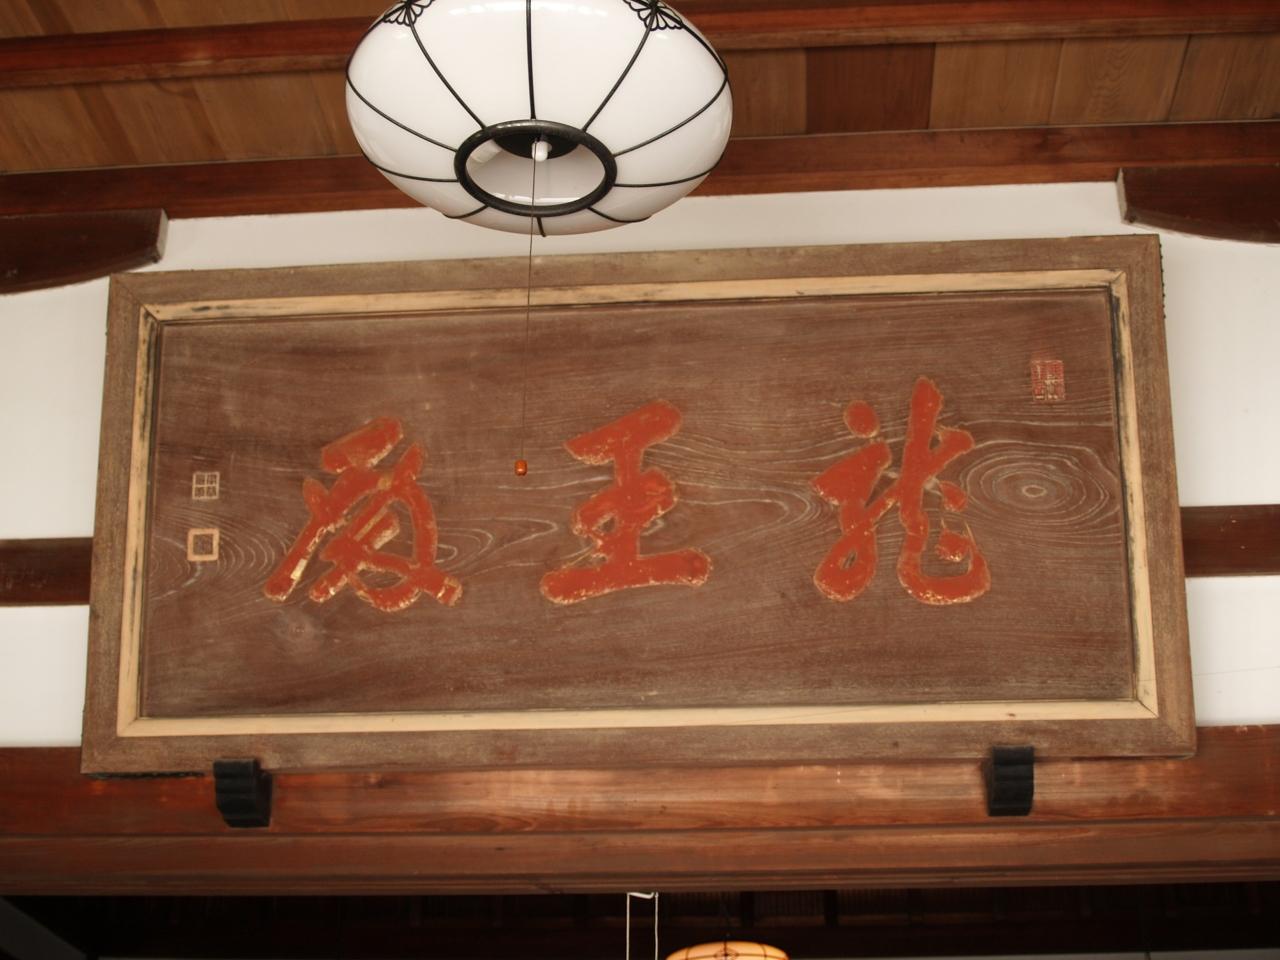 龍王殿